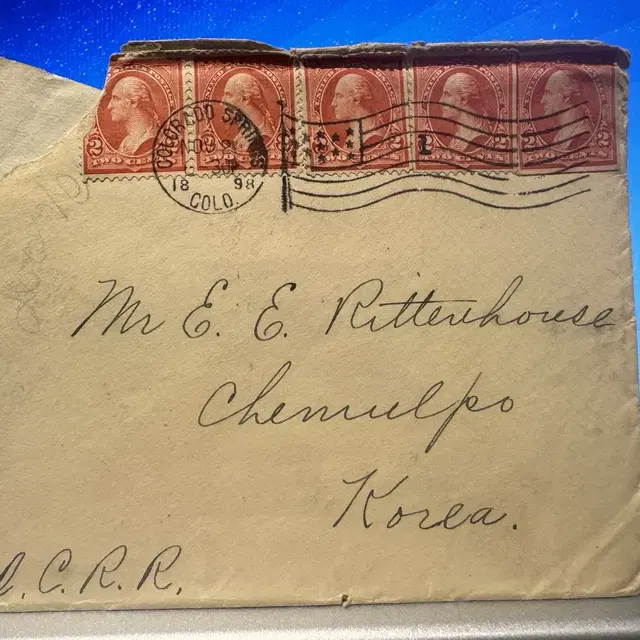 COLORADO SPRINGS
NOV
1898
COLO.
1
TWO
2
2
2
Mr E. E. Rittenhouse
Chemulpo
Korea.
C. R. R.